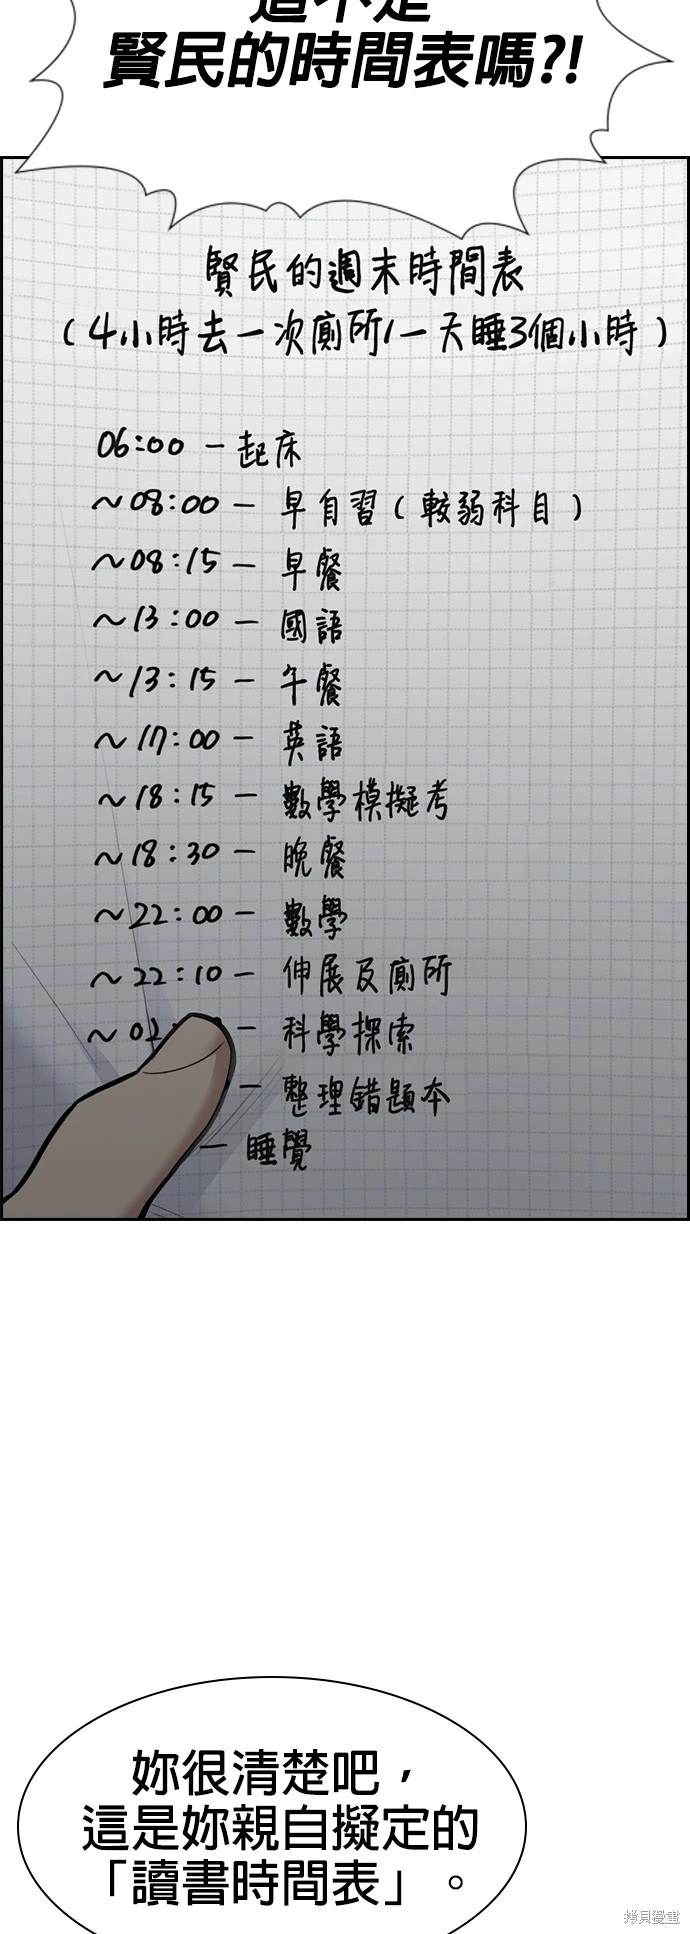 這不是
賢民的時間表嗎?!
賢民的週末時間表
(4小時去一次廁所/一天睡3個小時)
06:00 – 起床
~08:00 – 早自習(較弱科目)
~08:15 – 早餐
~13:00 – 國語
~13:15 – 午餐
~17:00 – 英語
~18:15 – 數學模擬考
~18:30 – 晚餐
~22:00 – 數學
~22:10 – 伸展及廁所
~ – 科學探索
– 整理錯題本
– 睡覺
妳很清楚吧，
這是妳親自擬定的
「讀書時間表」。
拷貝漫畫